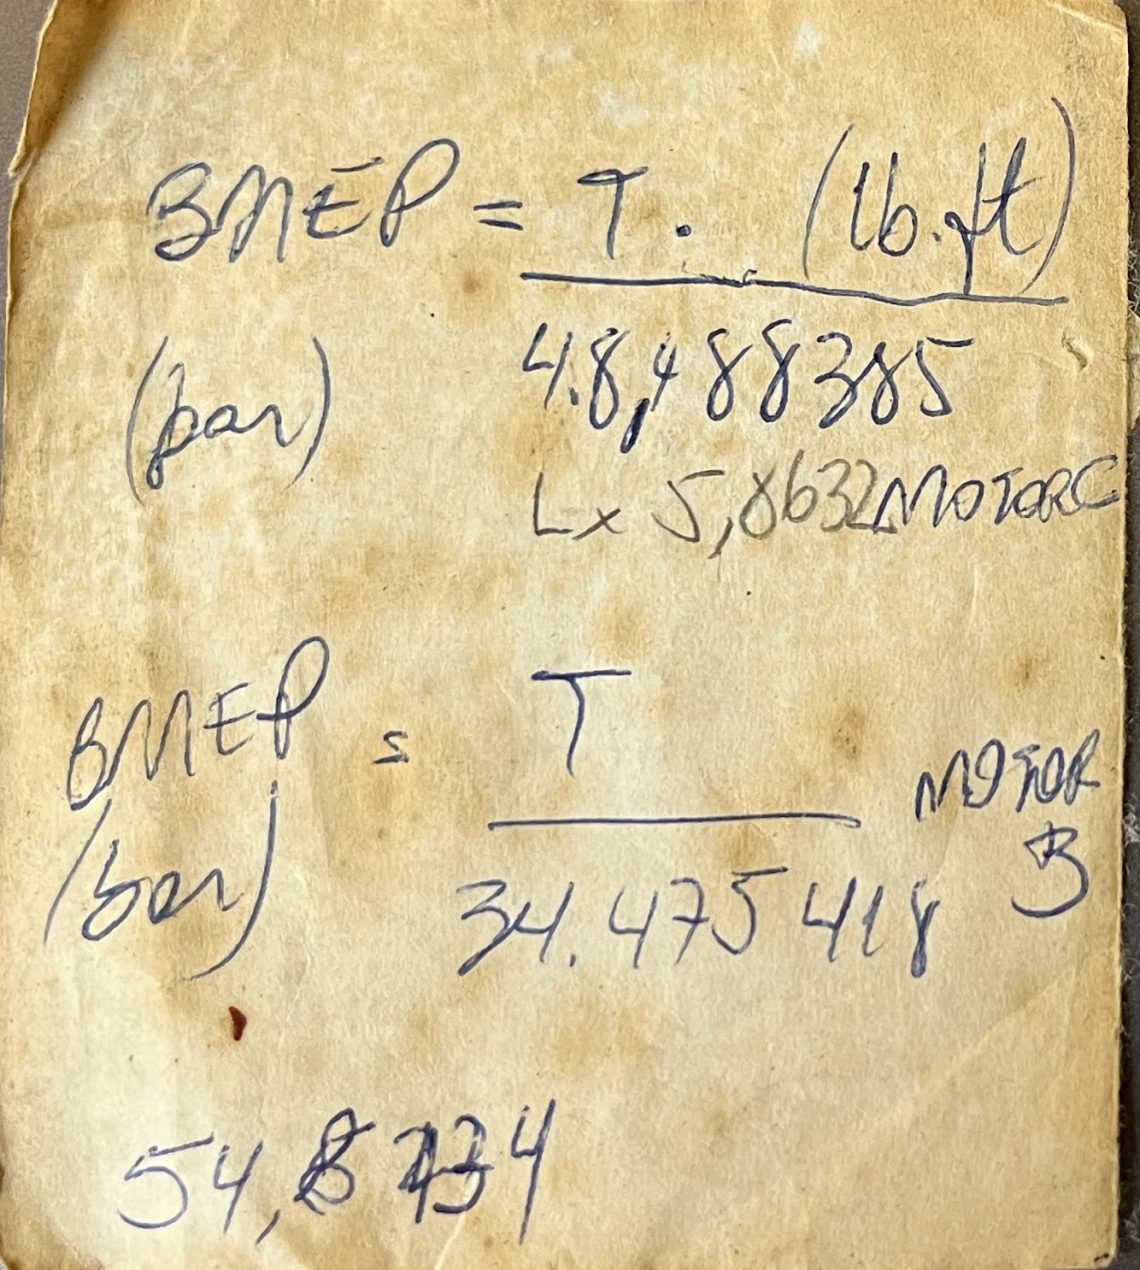 BMEP = T. (lb.ft)
(bar) 48,488385
L x 5,8632 MOTOR C
BMEP = T
MOTOR
(bar) 34.475418 B
54,8